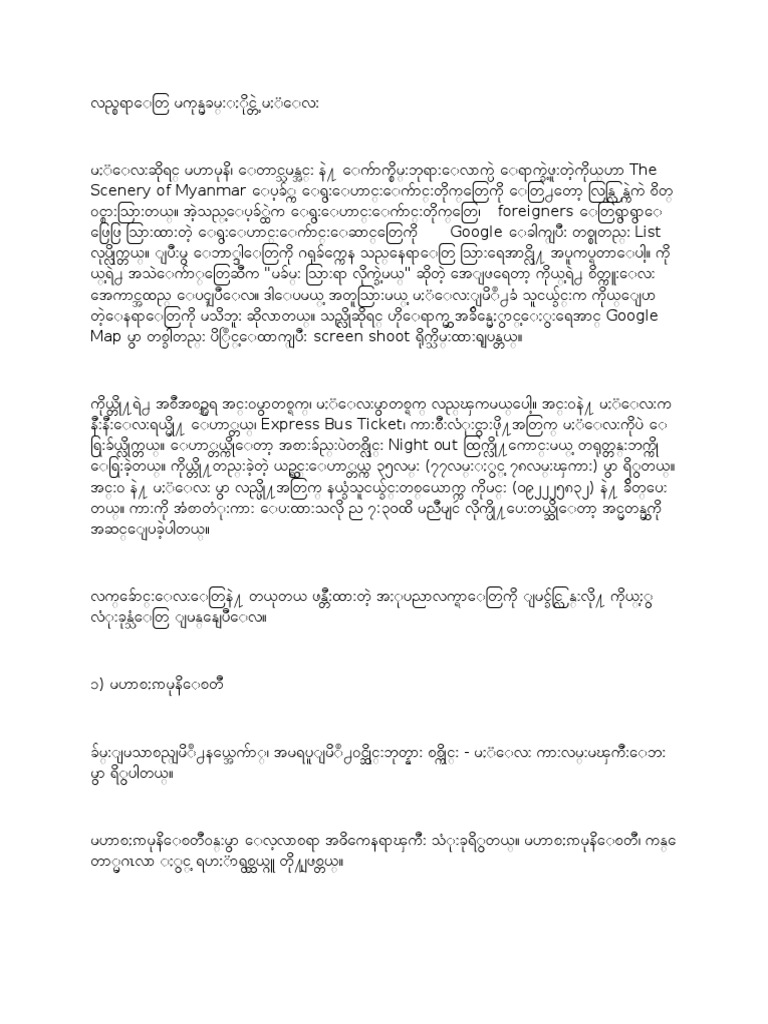 လည္စရာေတြ မကုန္မခမ္းႏိုင္တဲ့ မႏၱေလး
မႏၱေလးဆိုရင္ မဟာမုနိ၊ ေတာင္သမန္အင္း နဲ႔ ေက်ာက္စိမ္းဘုရားေလာက္ပဲ ေရာက္ခဲ့ဖူးတဲ့ကိုယ္ဟာ The
Scenery of Myanmar ေပ့ခ်္က ေရွးေဟာင္းေက်ာင္းတိုက္ေတြကို ေတြ႕ေတာ့ လြန္လြန္ကဲကဲ စိတ္
ဝင္စားသြားတယ္။ အဲ့သည့္ေပ့ခ်္ထဲက ေရွးေဟာင္းေက်ာင္းတိုက္ေတြ၊ foreigners ေတြရွာရွာေ
ဖြေဖြ သြားထားတဲ့ ေရွးေဟာင္းေက်ာင္းေဆာင္ေတြကို Google ေခါက္ျပီး တစ္စုတည္း List
လုပ္လိုက္တယ္။ ျပီးမွ ေဘာ္ဒါေတြကို ဂရုခ်က္ကေန သည္ေနရာေတြ သြားရေအာင္လို႔ အပူကပ္ရတာေပါ့။ ကို
ယ့္ရဲ႕ အသဲေက်ာ္ေတြဆီက "မခ်မ္း သြားရာ လိုက္ခဲ့မယ္" ဆိုတဲ့ အေျဖရေတာ့ ကိုယ့္ရဲ႕ စိတ္ကူးေလး
အေကာင္အထည္ ေပၚျပီေလ။ ဒါေပမယ့္ အတူသြားမယ့္ မႏၱေလးျမိဳ႕ခံ သူငယ္ခ်င္းက ကိုယ္ေျပာ
တဲ့ေနရာေတြကို မသိဘူး ဆိုလာတယ္။ သည္လိုဆိုရင္ ဟိုေရာက္မွ အခ်ိန္မေႏွာင့္ေႏွးရေအာင္ Google
Map မွာ တစ္ခါတည္း ပိြဳင့္ေထာက္ျပီး screen shoot ရိုက္သိမ္းထားရျပန္တယ္။
ကိုယ္တို႔ရဲ႕ အစီအစဥ္အရ အင္းဝမွာတစ္ရက္၊ မႏၱေလးမွာတစ္ရက္ လည္ၾကမယ္ေပါ့။ အင္းဝနဲ႔ မႏၱေလးက
နီးနီးေလးရယ္မို႔ ေဟာ္တယ္၊ Express Bus Ticket၊ ကားစီးလံုးငွားဖို႔အတြက္ မႏၱေလးကိုပဲ ေ
ရြးခ်ယ္လိုက္တယ္။ ေဟာ္တယ္ကိုေတာ့ အစားခ်ည္းပဲတစ္လွိုင္း Night out ထြက္လို႔ေကာင္းမယ့္ တရုတ္တန္းဘက္ကို
ေရြးခဲ့တယ္။ ကိုယ္တို႔တည္းခဲ့တဲ့ ယဥ္စင္းေဟာ္တယ္က ၃၅လမ္း (၇၇လမ္းႏွင့္ ၇၈လမ္းၾကား) မွာ ရွိတယ္။
အင္းဝ နဲ႔ မႏၱေလး မွာ လည္ဖို႔အတြက္ နယ္ခံသူငယ္ခ်င္းတစ္ေယာက္က ကိုမင္း (၀၉၂၂၂၅၈၃၂) နဲ႔ ခ်ိတ္ေပး
တယ္။ ကားကို အံစာတံုးကား ေပးထားသလို ည ၇:၃၀ထိ မညီမျင္ လိုက္ပို႔ေပးတယ္ဆိုေတာ့ အင္မတန္မွကို
အဆင္ေျပခဲ့ပါတယ္။
လက္ေခ်ာင္းေလးေတြနဲ႔ တယုတယ ဖန္တီးထားတဲ့ အႏုပညာလက္ရာေတြကို ျမင္ခ်င္လြန္းလို႔ ကိုယ့္ႏွ
လံုးခုန္သံေတြ ျမန္ေနျပီေလ။
၁) မဟာစႏၵာမုနိေစတီ
ခ်မ္းျမသာစည္ျမိဳ႕နယ္အေက်ာ္၊ အမရပူျမိဳ႕ဝင္ဆိုင္းဘုတ္နား စစ္ကိုင္း - မႏၱေလး ကားလမ္းမၾကီးေဘး
မွာ ရွိပါတယ္။
မဟာစႏၵာမုနိေစတီဝန္းမွာ ေလ့လာစရာ အဓိကေနရာၾကီး သံုးခုရွိတယ္။ မဟာစႏၵာမုနိေစတီ၊ ကန္ေ
တာ္မဂၤလာ ႏွင့္ ရဟႏၱာရွစ္ဆယ္ဂူ တို႔ျဖစ္တယ္။